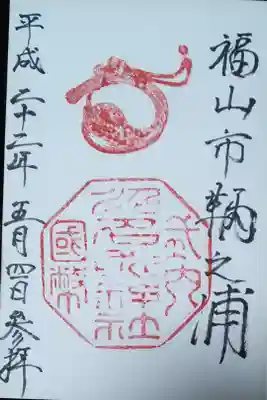 福山市鞆之浦
式内
國幣
平成二十二年五月四日参拝